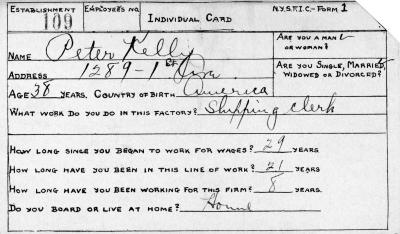 ESTABLISHMENT EMPLOYEE'S NO. INDIVIDUAL CARD N.Y.S.F.I.C.-FORM 1
109
ARE YOU A MAN
OR WOMAN?
NAME Peter Kelly
ADDRESS 1289-1st Ave.
ARE YOU SINGLE, MARRIED,
WIDOWED OR DIVORCED?
AGE 38 YEARS. COUNTRY OF BIRTH America
WHAT WORK DO YOU DO IN THIS FACTORY? Shipping Clerk
HOW LONG SINCE YOU BEGAN TO WORK FOR WAGES? 29 YEARS
HOW LONG HAVE YOU BEEN IN THIS LINE OF WORK? 21 YEARS
HOW LONG HAVE YOU BEEN WORKING FOR THIS FIRM? 8 YEARS.
DO YOU BOARD OR LIVE AT HOME? Home